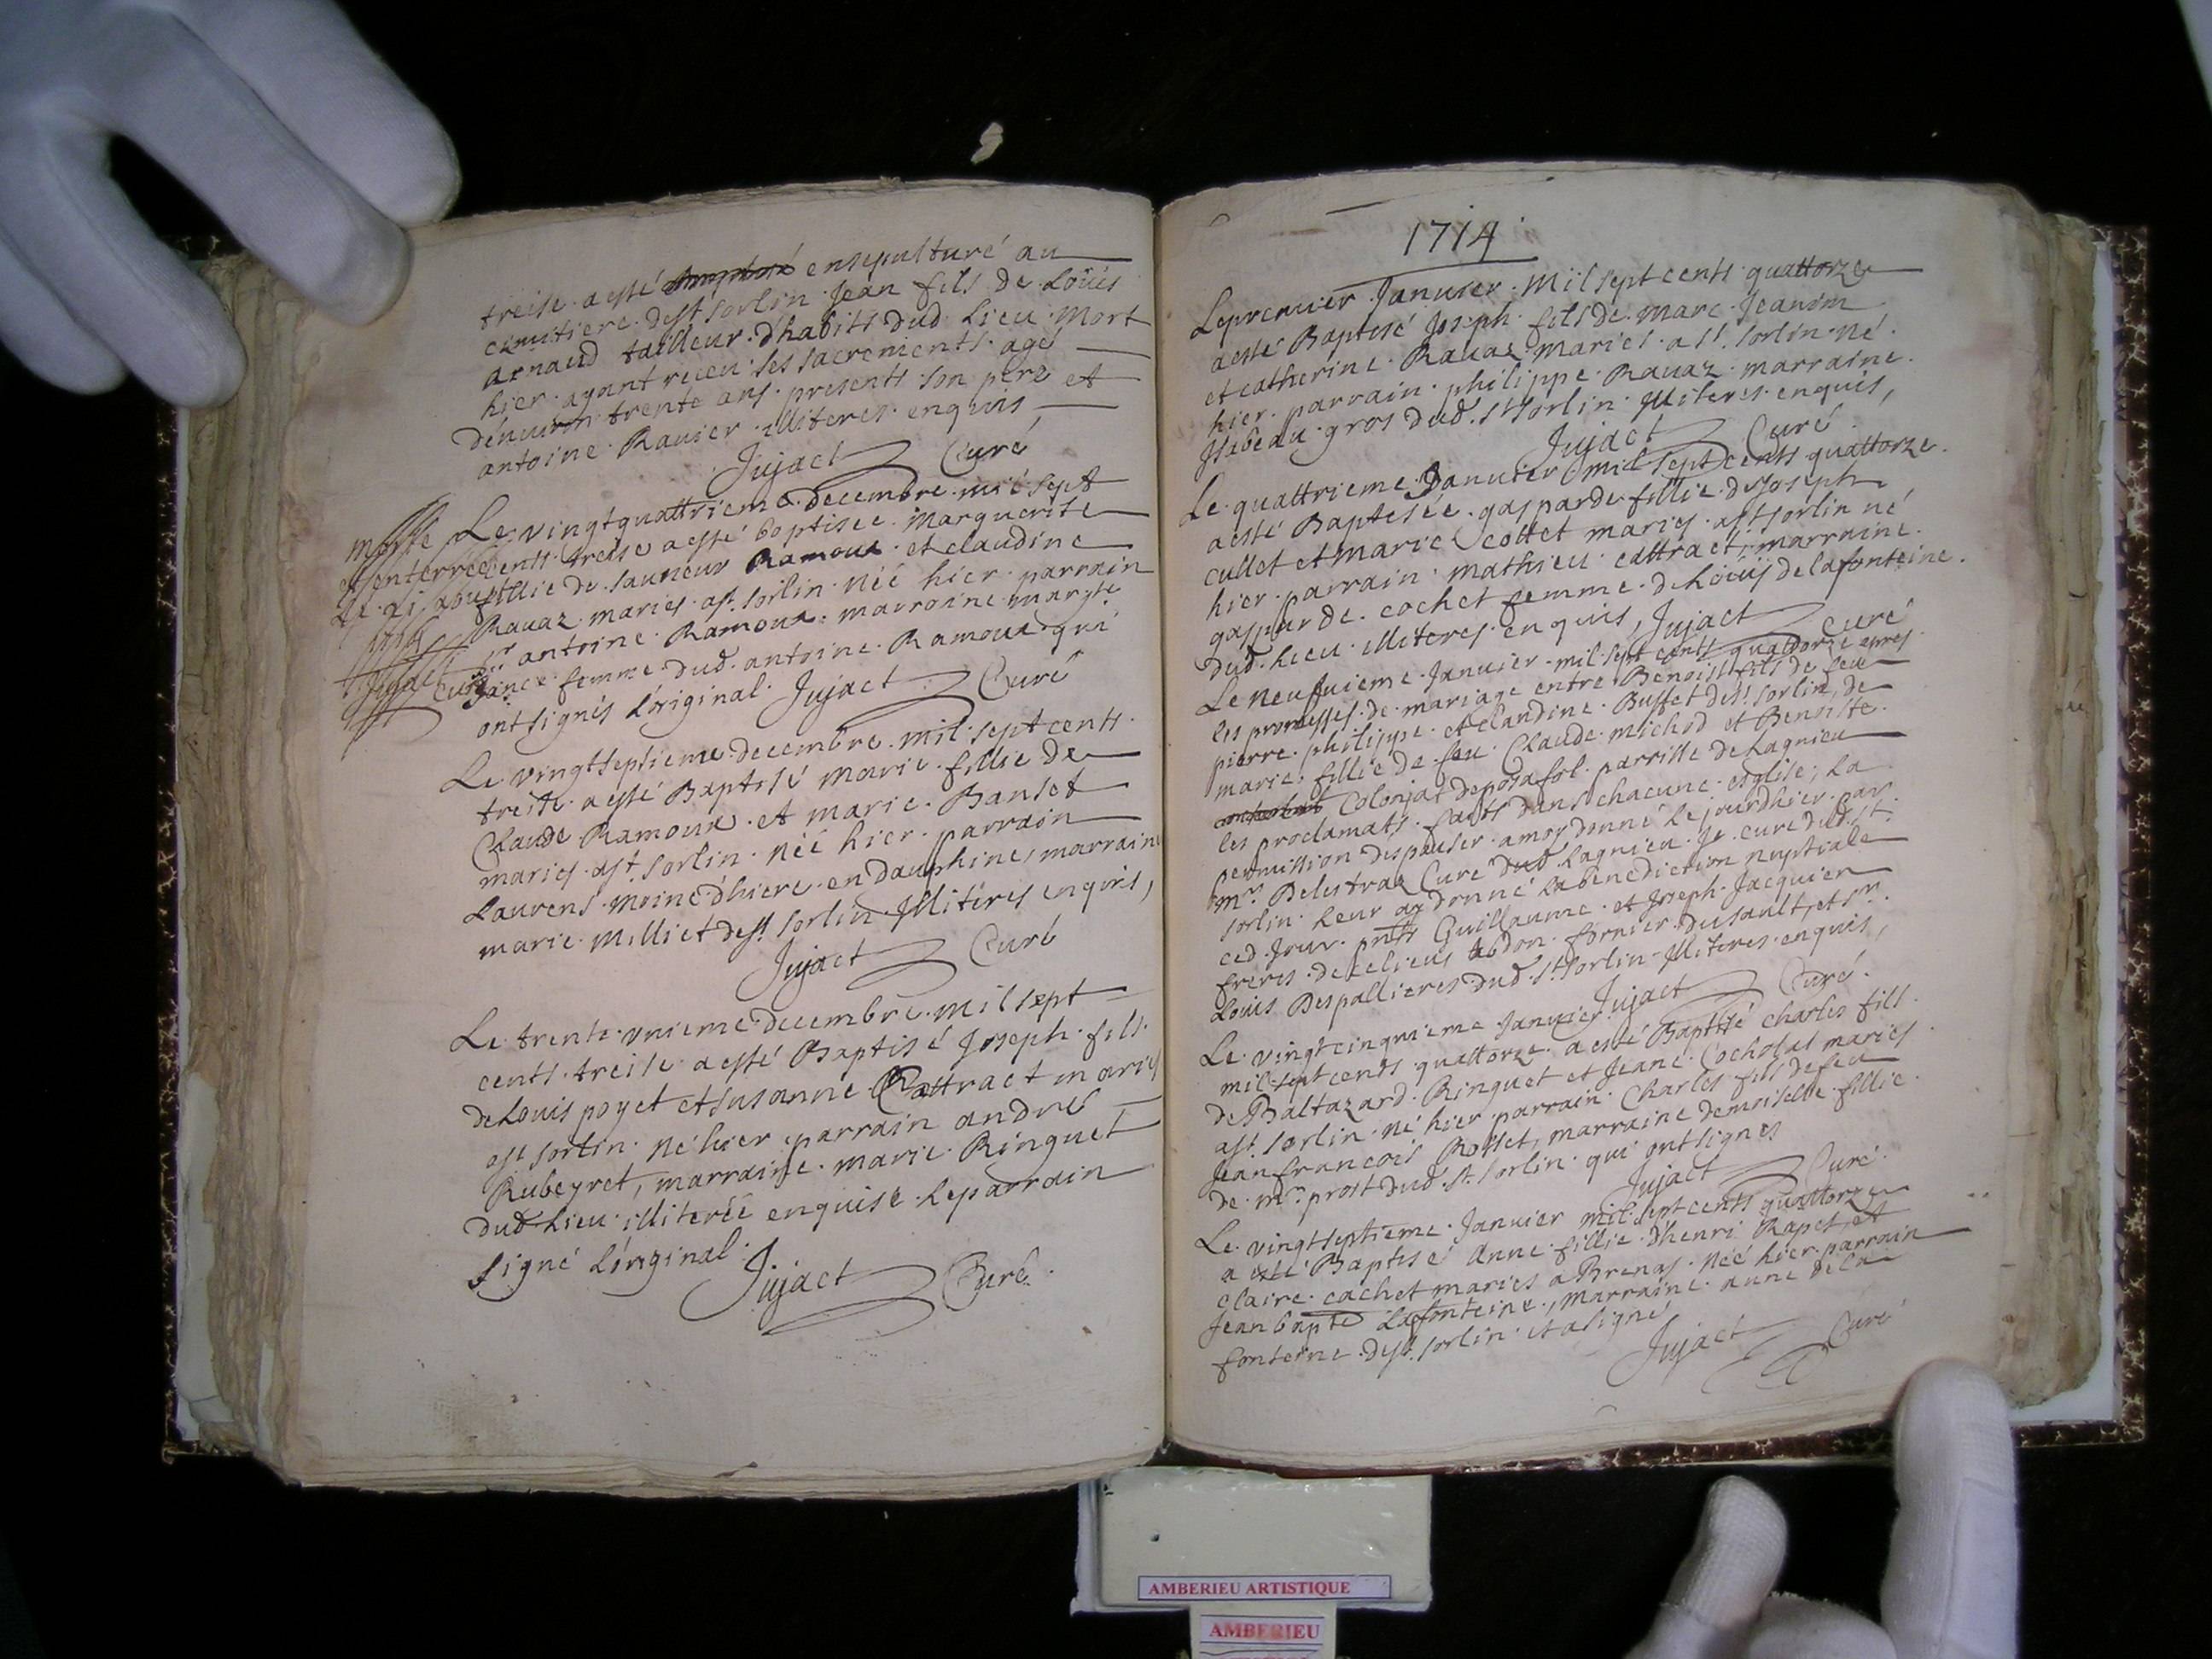 treise a esté ensepulturé au
cemitiere de st sorlin Jean fils de Loüis
arnaud tailleur d'habits dud. Lieu mort
hier ayant receu ses sacrements agé
denuiron trente ans presents son pere et
antoine Rauier illiteres enquis
Jujact Curé
Le vingt quattrieme decembre mil sept
cents treise a esté baptisée Marguerite
fillie de sauueur Ramoux et claudine
Rauaz mariés a st. sorlin née hier parrain
sr antoine Ramoux marraine margte
femme dud. antoine Ramoux qui
ont signés l'original Jujact Curé
morte
et enterrée
Le 21 aoust
Jujact Curé
Le vingt septieme decembre mil sept cents
treise a esté Baptisé marie fillie de
Claude Ramoux et marie Banset
mariés a st. sorlin née hier parrain
Laurens moine d'hiere en dauphine, marraine
marie Milliet de st sorlin Illiteres enquis,
Jujact Curé
Le trente vnieme decembre mil sept
cents treise a esté Baptisé Joseph fils
de Louis poyet et susanne Cattract mariés
a st sorlin né hier parrain andré
Rubeyret, marraine marie Ringuet
dud Lieu illiterée enquise le parrain
signé l'original
Jujact Curé
1714
Le premier Januier Mil sept cents quattorze
a esté Baptisé Joseph fils de Marc Jeanim
et catherine Rauaz Mariés a st. sorlin né
hier parrain philippe Rauaz marraine
Isabeau gros dud. st sorlin Illiteres enquis,
Jujact Curé
Le quattrieme Januier mil sept cents quattorze
a esté Baptisée gasparde fillie de Joseph
cullet et Marie cottet mariés a st sorlin né
hier parrain Mathieu cattract, marraine
gasparde cochet femme de Loüis de lafonteine
dud. Lieu illiteres enquis, Jujact Curé
Le neufuieme Januier mil sept cents quattorze apres
les promesses de mariage entre Benoist fils de feu
pierre philippe et claudine Buffet de st. sorlin, de
marie fillie de feu Claude michod et Benoiste
Colonjat de posafol parrisse de Lagnieu
les proclamats faits dans chacune esglise, La
permission despauser a moy donné le jourdhier par
mr. Delestraz Curé dud. Lagnieu Je curé dud. st.
sorlin leur ay donné la benediction nuptiale
ced. Jour pnts Guillaume et Joseph Jacquier
freres de celieus abdon fornier du sault, et sr.
Louis Despallieres dud. st. sorlin Illiteres enquis,
Jujact Curé
Le vingt cinquieme Januier
mil sept cents quattorze a esté Baptisé Charles fils
de Baltazard Ringuet et Jeane Cocholat mariés
a st. sorlin né hier parrain Charles fils de feu
Jean francois Rosset, marraine demoiselle fillie
de mr. prost dud. st. sorlin qui ont signes
Jujact Curé
Le vingt septieme Januier mil sept cents quattorze
a esté Baptisé Anne fillie d'henri Rapet, et
claire cachet mariés a Brenas née hier parrain
Jean bapte Lafonteine, marraine anne de la
fonteine de st. sorlin et a signé
Jujact Curé
AMBERIEU ARTISTIQUE
AMBERIEU